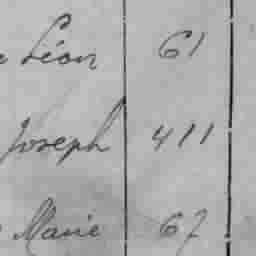 Léon 61
Joseph 411
Marie 67